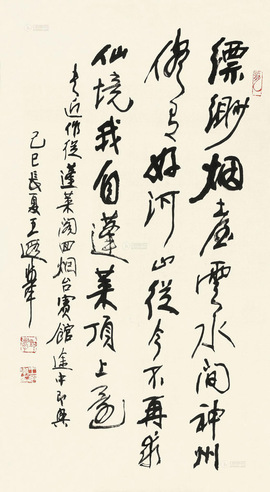 缥缈烟台云水间神州
尽有好河山从今不再求
仙境我自蓬莱顶上还
近作从蓬莱阁回烟台宾馆途中即兴
己巳长夏王遐举